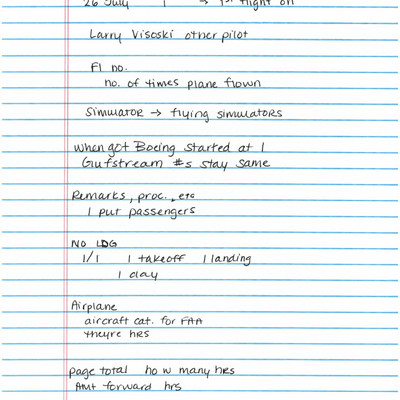 26 July 1 → 1st flight on
Larry Visoski other pilot
Fl no.
no. of times plane flown
Simulator → flying simulators
when got Boeing started at 1
Gufstream #s stay same
Remarks, proc., etc
I put passengers
NO LDG
1/1 1 takeoff 1 landing
1 day
Airplane
aircraft cat. for FAA
theyre hrs
page total how many hrs
Amt forward hrs